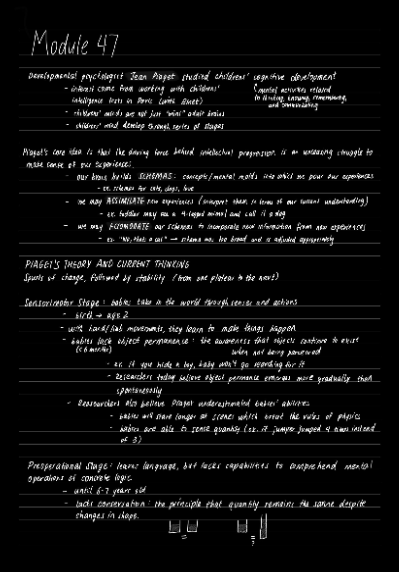 Module 47
Developmental psychologist Jean Piaget studied childrens' cognitive development
- interest came from working with childrens' (mental activities related
intelligence tests in Paris (with Binet) to thinking, knowing, remembering,
- childrens' minds are not just "mini" adult brains and communicating
- childrens' mind develop through series of stages
Piaget's core idea is that the driving force behind intellectual progression is an unceasing struggle to
make sense of our experiences.
- our brain builds SCHEMAS: concepts/mental molds into which we pour our experiences
- ex. schemas for cats, dogs, love
- we may ASSIMILATE new experiences (interpret them in terms of our current understanding)
- ex. toddler may see a 4-legged animal and call it a dog
- we may ACCOMODATE our schemas to incorporate new information from new experiences
- ex. "No, that's a cat" → schema was too broad and is adjusted appropriately
PIAGET'S THEORY AND CURRENT THINKING
Spurts of change, followed by stability (from one plateau to the next)
Sensorimotor Stage: babies take in the world through senses and actions
- birth → age 2
- with hand/limb movements, they learn to make things happen
- babies lack object permanence: the awareness that objects continue to exist
(<6 months) when not being perceived
- ex. if you hide a toy, baby won't go searching for it
- Researchers today believe object permanence emerges more gradually than
spontaneously
- Researchers also believe Piaget underestimated babies' abilities
- babies will stare longer at scenes which break the rules of physics
- babies are able to sense quantity (ex. if jumper jumped 4 times instead
of 3)
Preoperational Stage: learns language, but lacks capabilities to comprehend mental
operations of concrete logic
- until 6-7 years old
- Lacks conservation: the principle that quantity remains the same despite
changes in shape.
= =
?